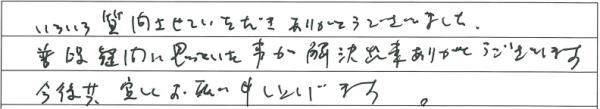 いろいろ質問させていただき ありがとうございました。
普段疑問に思っていた事が解決出来ありがとうございます
今後共 宜しくお願い申し上げます。